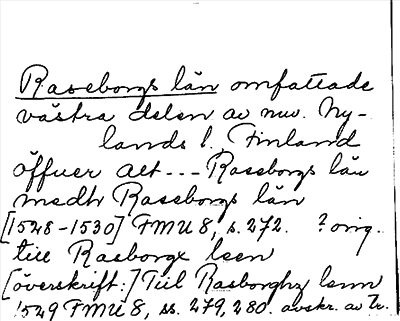 Raseborgs län omfattade
västra delen av nuv. Ny-
lands l. Finland
öffuer alt --- Raseborgs län
medh Raseborgs län
[1528-1530] FMU 8, s. 272. ? orig.
till Rasborgx leen
[överskrift:] Till Rasborghz lenn
1529 FMU 8, ss. 279, 280. avskr. av Tr.